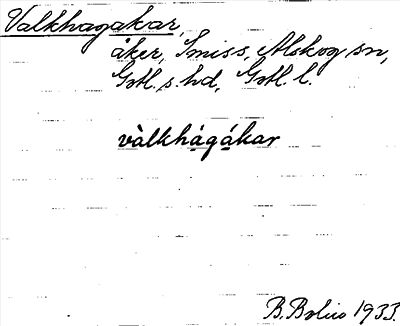 Valkhagakar,
åker, Smiss, Alskog sn,
Gotl. s. hd, Gotl. l.
vàlkhágákar
B. Bolin 1933.